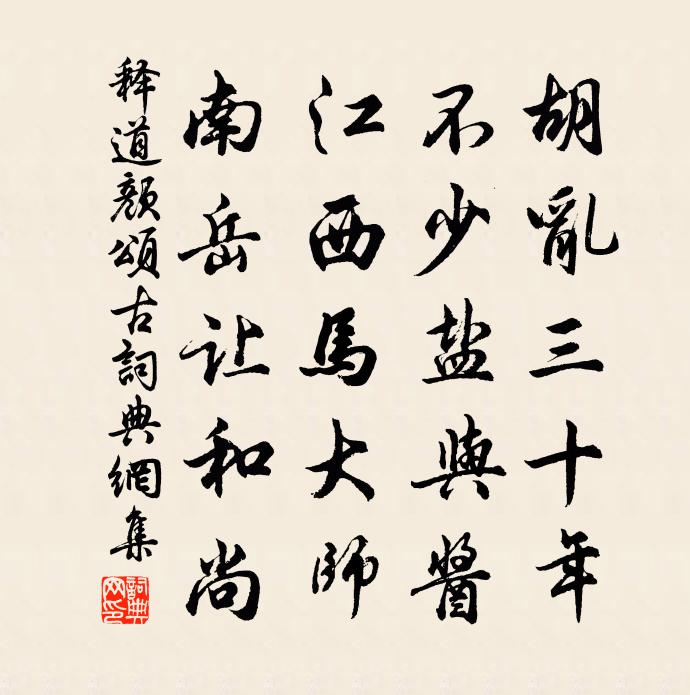 胡亂三十年
不少盐與醬
江西馬大師
南岳让和尚
释道颜頌古詞典網集
詞典網印